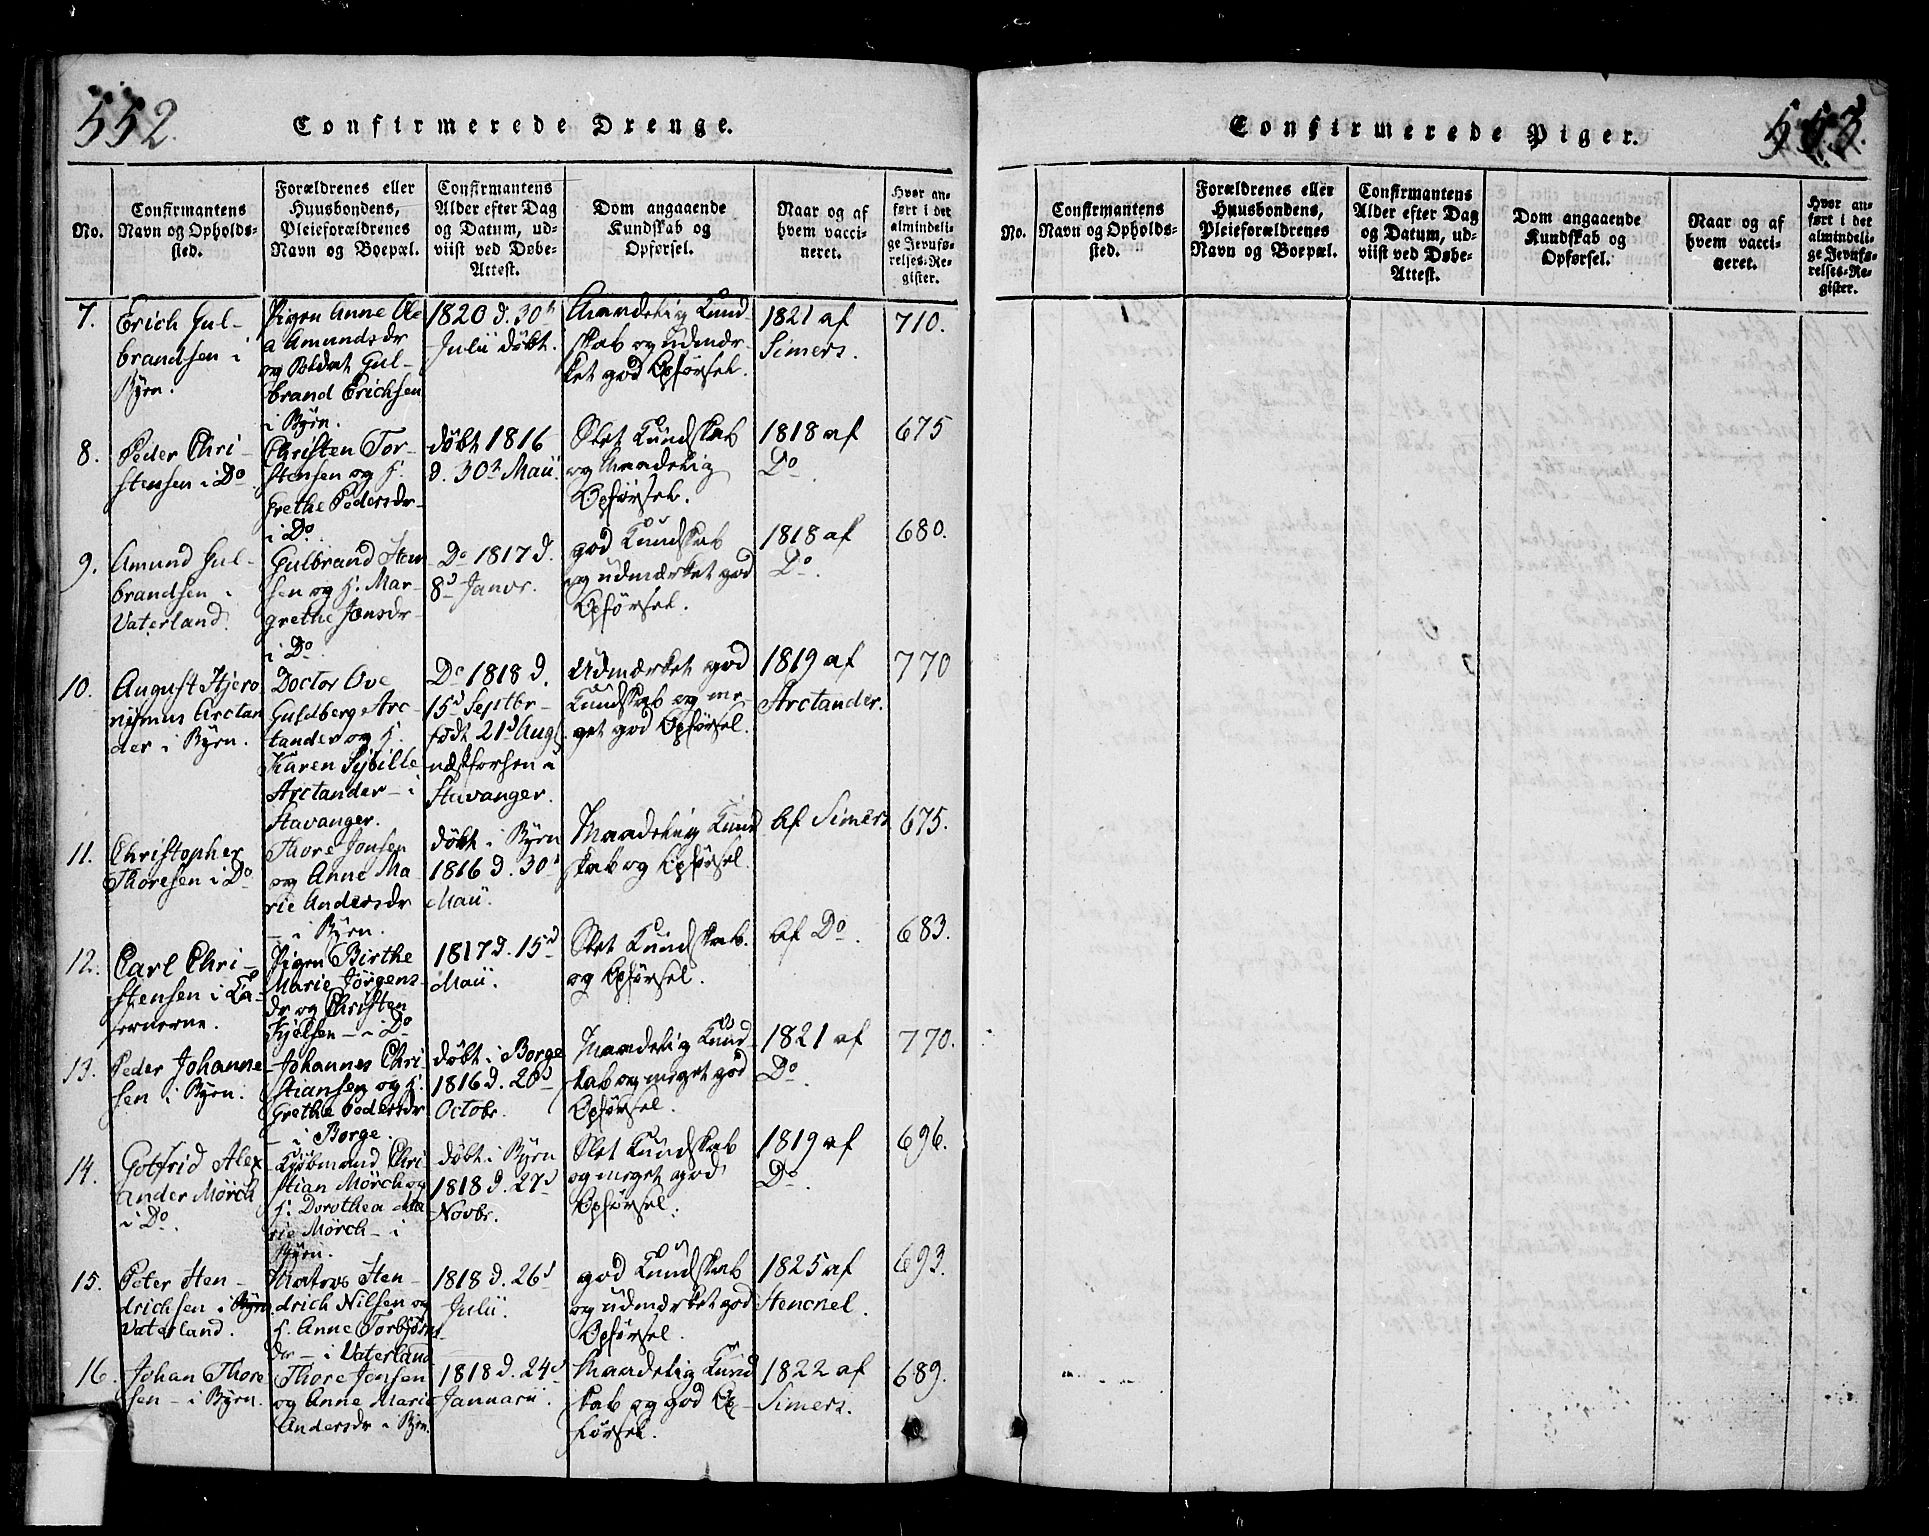 552.
Confirmerede Drenge.
No.
Confirmantens
Navn og Opholds-
sted.
Forældrenes eller
Huusbondens,
Pleieforældrenes
Navn og Boepæl.
Confirmantens
Alder efter Dag
og Datum, ud-
viist ved Døbe-
Attest.
Dom angaaende
Kundskab og
Opførsel.
Naar og af
hvem vacci-
neret.
Hvor an-
ført i det
almindeli-
ge Jevnfø-
relses-Re-
gister.
7.
Erich Gul-
brandsen i
Byen.
Pigen Anne Ole
a Amundsdr
og Soldat Gul-
brand Erichsen
i Byen.
1820 d. 30t
Julii døbt.
Maadelig Kund-
skab og udmær-
ket god Opførsel.
1821 af
Simers.
710.
8.
Peder Chri-
stensen i Do
Christen Tor-
stensen og H.
Grethe Pedersdr
i Do
døbt 1816
d. 30t Maii.
Slet Kundskab
og Maadelig
Opførsel.
1818 af
Do
675
9.
Amund Gul-
brandsen i
Vaterland.
Gulbrand Hen
sen og H. Mar-
grethe Jonsdr
i Do
Do 1817 d.
8d Janvr.
god Kundskab
og udmærket god
Opførsel.
1818 af
Do.
680.
10.
August Hjero
nijmus Arctan
der i Byen.
Doctor Ove
Guldberg Arc-
tander og H.
Karen Sybille
Arctander - i
Stavanger.
Do 1818 d.
15d Septbr -
født 21d Aug
næstforhen i
Stavanger.
Udmærket god
Kundskab og me
get god Opførsel.
1819 af
Arctander.
770
11.
Christopher
Thoresen i Do
Thore Jonsen
og Anne Ma
rie Andersdr
- i Byen.
døbt i Byen
1816 d. 30t
Maii.
Maadelig Kund
skab og Opførsel.
Af Simers
675.
12.
Carl Chri-
stensen i Ca-
sernerne.
Pigen Birthe
Marie Jörgens-
dr og Christen
Kjelsen - i Do
1817 d. 15d
Maii.
Slet Kundskab.
og Opførsel.
Af Do.
683.
13.
Peder Johanne
sen i Byen.
Johannes Chri-
stiansen og H.
Grethe Pedersdr
- i Borge.
døbt i Borge
1816 d. 20d
Octobr.
Maadelig Kund-
skab og meget god
Opførsel.
1821 af
Do.
770.
14.
Gotfrid Alex
ander Mörch
i Do.
Kjøbmand Chri
stian Mörch og
H. Dorothea Ma
rie Mörch - i
Byen.
døbt i Byen
1818 d. 27d
Novbr.
Slet Kundskab
og meget god
Opførsel.
1819 af
Do.
696.
15.
Peter Hen-
drichsen i Byen.
Vaterland.
Matros Hen-
drich Nilsen og
H. Anne Torbjörns
dr - i Vaterland
1818 d. 26d
Julii.
god Kundskab
og udmærket god
Opførsel.
1825 af
693.
16.
Johan Thore
sen - i Byen.
Thore Jonsen
og Anne Marie
Andersdr i Byen.
1818 d. 24d
Januarii.
Maadelig Kund
skab og god Op-
førsel.
1822 af
Simers.
689.
553.
Confirmerede Piger.
No.
Confirmantens
Navn og Opholds-
sted.
Forældrenes eller
Huusbondens,
Pleieforældrenes
Navn og Boepæl.
Confirmantens
Alder efter Dag
og Datum, ud-
viist ved Døbe-
Attest.
Dom angaaende
Kundskab og
Opførsel.
Naar og af
hvem vacci-
neret.
Hvor an-
ført i det
almindeli-
ge Jevnfø-
relses-Re-
gister.